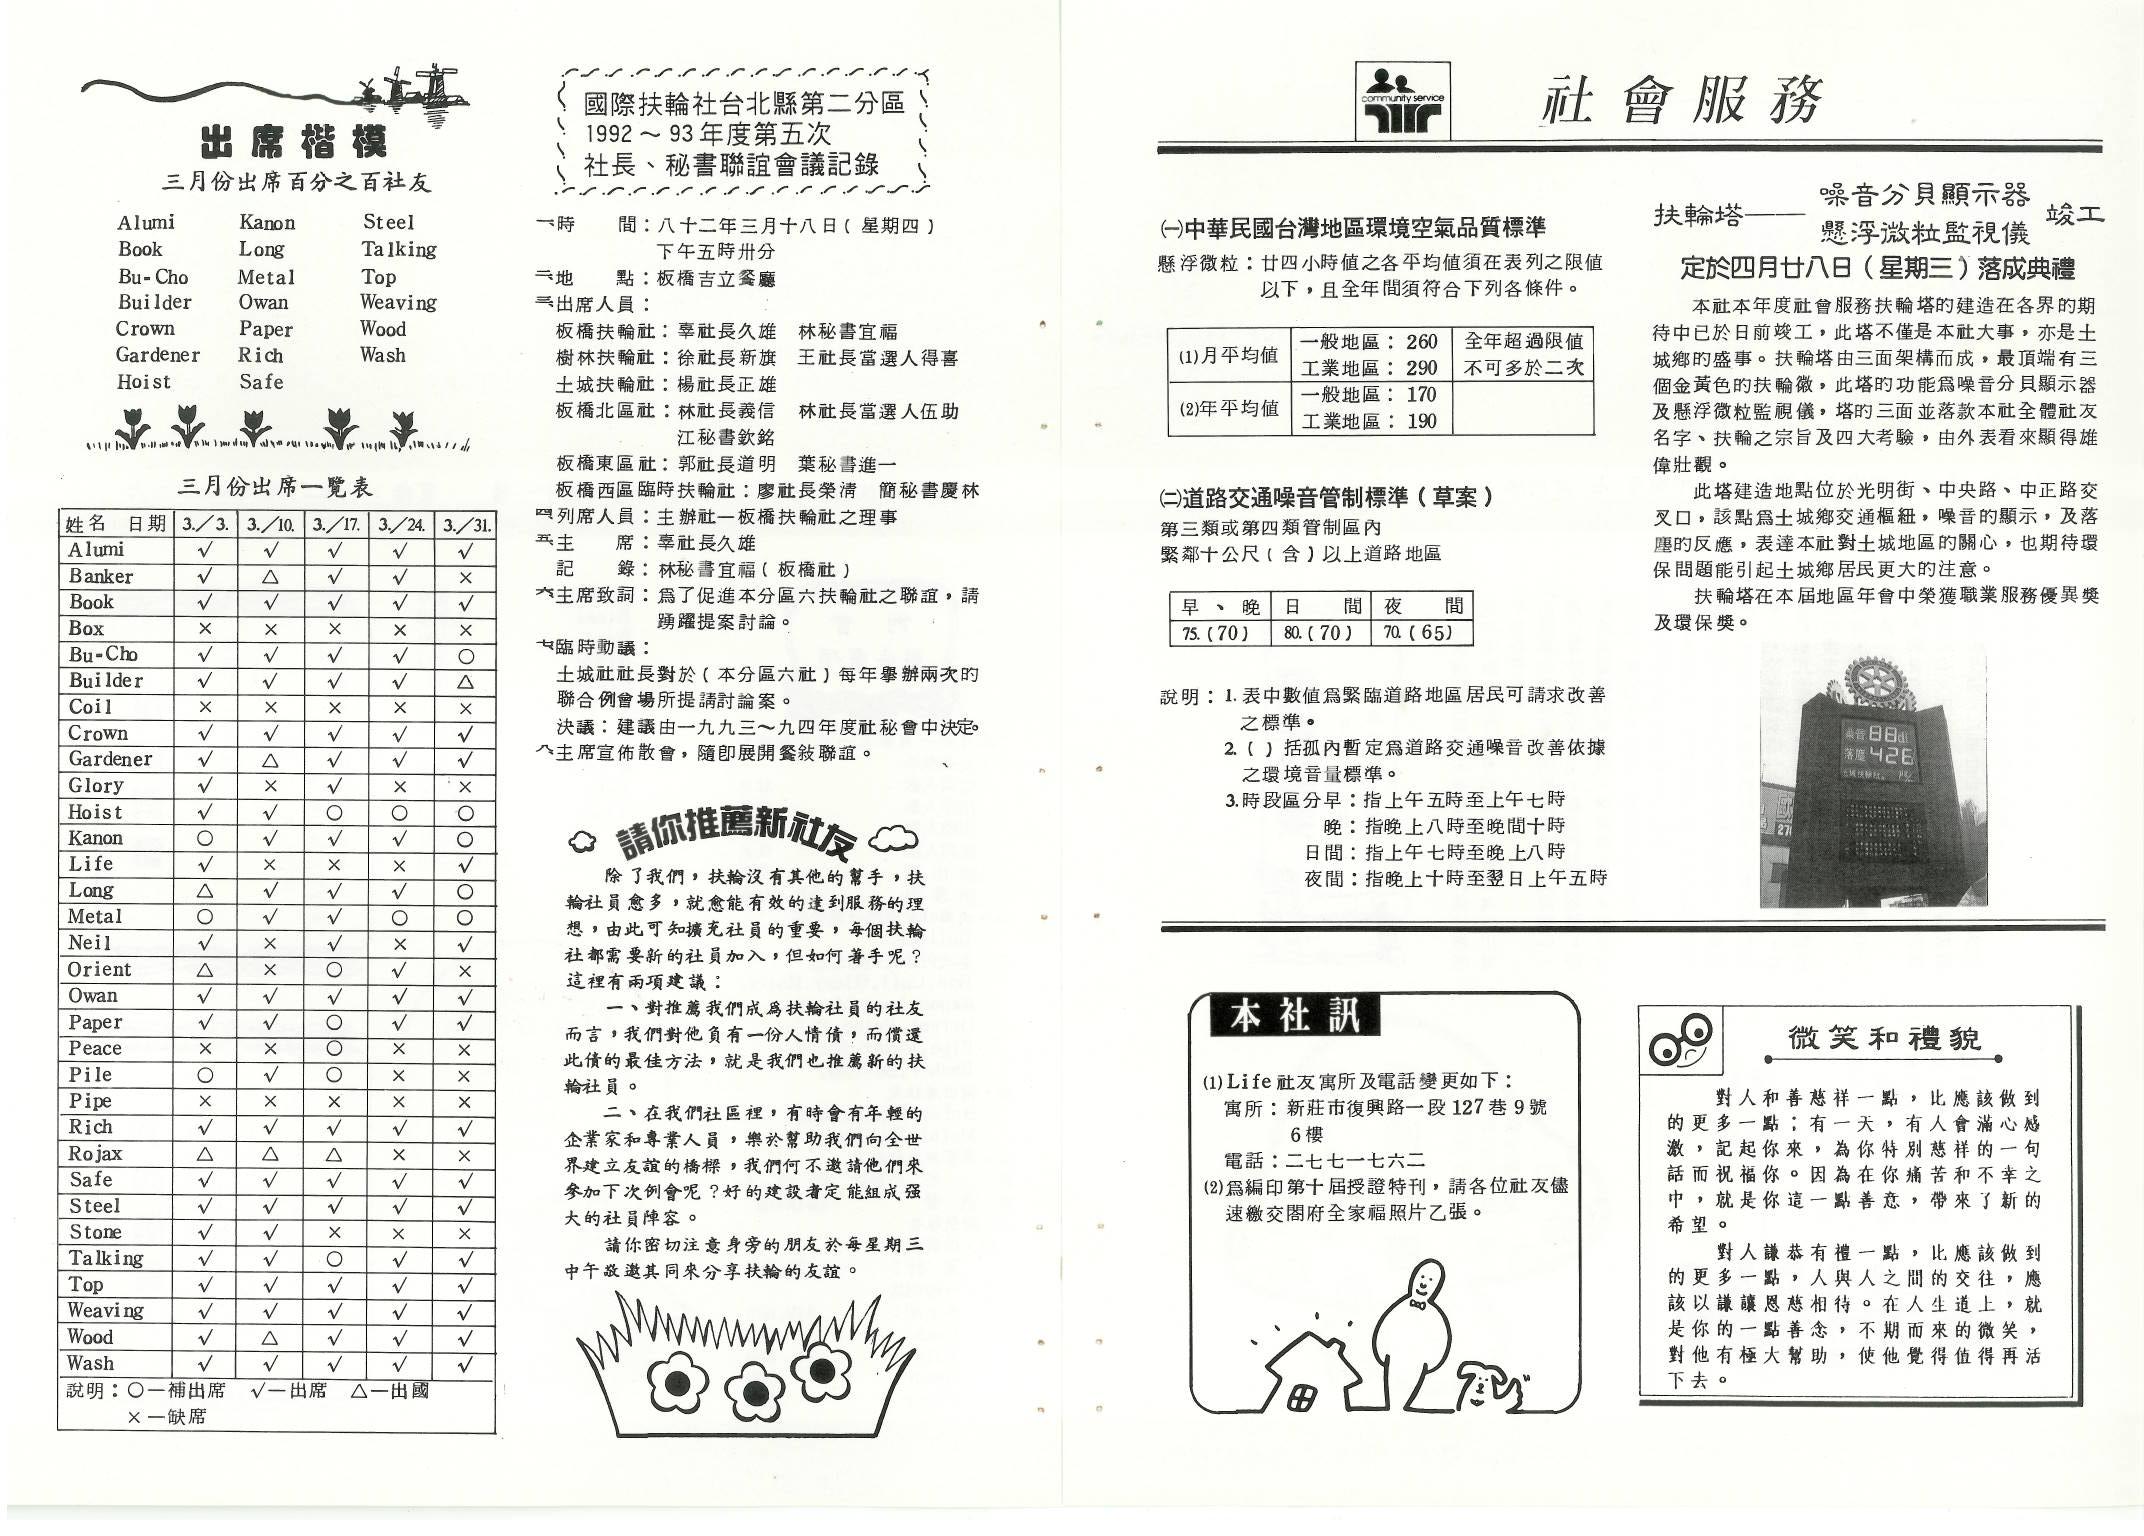 出席楷模
三月份出席百分之百社友
Alumi Kanon Steel
Book Long Talking
Bu-Cho Metal Top
Builder Owan Weaving
Crown Paper Wood
Gardener Rich Wash
Hoist Safe
三月份出席一覽表
姓名 日期 3./3. 3./10. 3./17. 3./24. 3./31.
Alumi √ √ √ √ √
Banker √ △ √ √ ×
Book √ √ √ √ √
Box × × × × ×
Bu-Cho √ √ √ √ ○
Builder √ √ √ √ △
Coil × × × × ×
Crown √ √ √ √ √
Gardener √ △ √ √ √
Glory √ × √ × ×
Hoist √ √ ○ ○ ○
Kanon ○ √ √ √ ○
Life √ × × × √
Long △ √ √ √ ○
Metal ○ √ √ ○ ○
Neil √ × √ × √
Orient △ × ○ √ ×
Owan √ √ √ √ √
Paper √ √ ○ √ √
Peace × × ○ × ×
Pile ○ √ ○ × ×
Pipe × × × × ×
Rich √ √ √ √ √
Rojax △ △ △ × ×
Safe √ √ √ √ √
Steel √ √ √ √ √
Stone √ √ × × ×
Talking √ √ ○ √ √
Top √ √ √ √ √
Weaving √ √ √ √ √
Wood √ △ √ √ √
Wash √ √ √ √ √
說明：○—補出席 √—出席 △—出國
×—缺席
國際扶輪社台北縣第二分區
1992～93年度第五次
社長、秘書聯誼會議記錄
一時 間：八十二年三月十八日（星期四）
下午五時卅分
二地 點：板橋吉立餐廳
三出席人員：
板橋扶輪社：辜社長久雄 林秘書宜福
樹林扶輪社：徐社長新旗 王社長當選人得喜
土城扶輪社：楊社長正雄
板橋北區社：林社長義信 林社長當選人伍助
江秘書欽銘
板橋東區社：郭社長道明 葉秘書進一
板橋西區臨時扶輪社：廖社長榮清 簡秘書慶林
四列席人員：主辦社—板橋扶輪社之理事
五主 席：辜社長久雄
記 錄：林秘書宜福（板橋社）
六主席致詞：為了促進本分區六扶輪社之聯誼，請
踴躍提案討論。
七臨時動議：
土城社社長對於（本分區六社）每年舉辦兩次的
聯合例會場所提請討論案。
決議：建議由一九九三～九四年度社秘會中決定。
八主席宣佈散會，隨即展開餐敍聯誼。
請你推薦新社友
除了我們，扶輪沒有其他的幫手，扶
輪社員愈多，就愈能有效的達到服務的理
想，由此可知擴充社員的重要，每個扶輪
社都需要新的社員加入，但如何著手呢？
這裡有兩項建議：
一、對推薦我們成為扶輪社員的社友
而言，我們對他負有一份人情債，而償還
此債的最佳方法，就是我們也推薦新的扶
輪社員。
二、在我們社區裡，有時會有年輕的
企業家和專業人員，樂於幫助我們向全世
界建立友誼的橋樑，我們何不邀請他們來
參加下次例會呢？好的建設者定能組成强
大的社員陣容。
請你密切注意身旁的朋友於每星期三
中午敬邀其同來分享扶輪的友誼。
community service
社會服務
㈠中華民國台灣地區環境空氣品質標準
懸浮微粒：廿四小時值之各平均值須在表列之限值
以下，且全年間須符合下列各條件。
⑴月平均值 一般地區：260 全年超過限值
工業地區：290 不可多於二次
⑵年平均值 一般地區：170
工業地區：190
㈡道路交通噪音管制標準（草案）
第三類或第四類管制區內
緊鄰十公尺（含）以上道路地區
早、晚 日 間 夜 間
75.(70) 80.(70) 70.(65)
說明：1.表中數值為緊臨道路地區居民可請求改善
之標準。
2.（ ）括孤內暫定為道路交通噪音改善依據
之環境音量標準。
3.時段區分早：指上午五時至上午七時
晚：指晚上八時至晚間十時
日間：指上午七時至晚上八時
夜間：指晚上十時至翌日上午五時
扶輪塔——噪音分貝顯示器
懸浮微粒監視儀 竣工
定於四月廿八日（星期三）落成典禮
本社本年度社會服務扶輪塔的建造在各界的期
待中已於日前竣工，此塔不僅是本社大事，亦是土
城鄉的盛事。扶輪塔由三面架構而成，最頂端有三
個金黃色的扶輪徽，此塔的功能為噪音分貝顯示器
及懸浮微粒監視儀，塔的三面並落款本社全體社友
名字、扶輪之宗旨及四大考驗，由外表看來顯得雄
偉壯觀。
此塔建造地點位於光明街、中央路、中正路交
叉口，該點為土城鄉交通樞紐，噪音的顯示，及落
塵的反應，表達本社對土城地區的關心，也期待環
保問題能引起土城鄉居民更大的注意。
扶輪塔在本屆地區年會中榮獲職業服務優異獎
及環保獎。
噪音 88
落塵 426
本社訊
⑴Life社友寓所及電話變更如下：
寓所：新莊市復興路一段127巷9號
6樓
電話：二七七一七六二
⑵為編印第十屆授證特刊，請各位社友儘
速繳交閤府全家福照片乙張。
微笑和禮貌
對人和善慈祥一點，比應該做到
的更多一點；有一天，有人會滿心感
激，記起你來，為你特別慈祥的一句
話而祝福你。因為在你痛苦和不幸之
中，就是你這一點善意，帶來了新的
希望。
對人謙恭有禮一點，比應該做到
的更多一點，人與人之間的交往，應
該以謙讓恩慈相待。在人生道上，就
是你的一點善念，不期而來的微笑，
對他有極大幫助，使他覺得值得再活
下去。